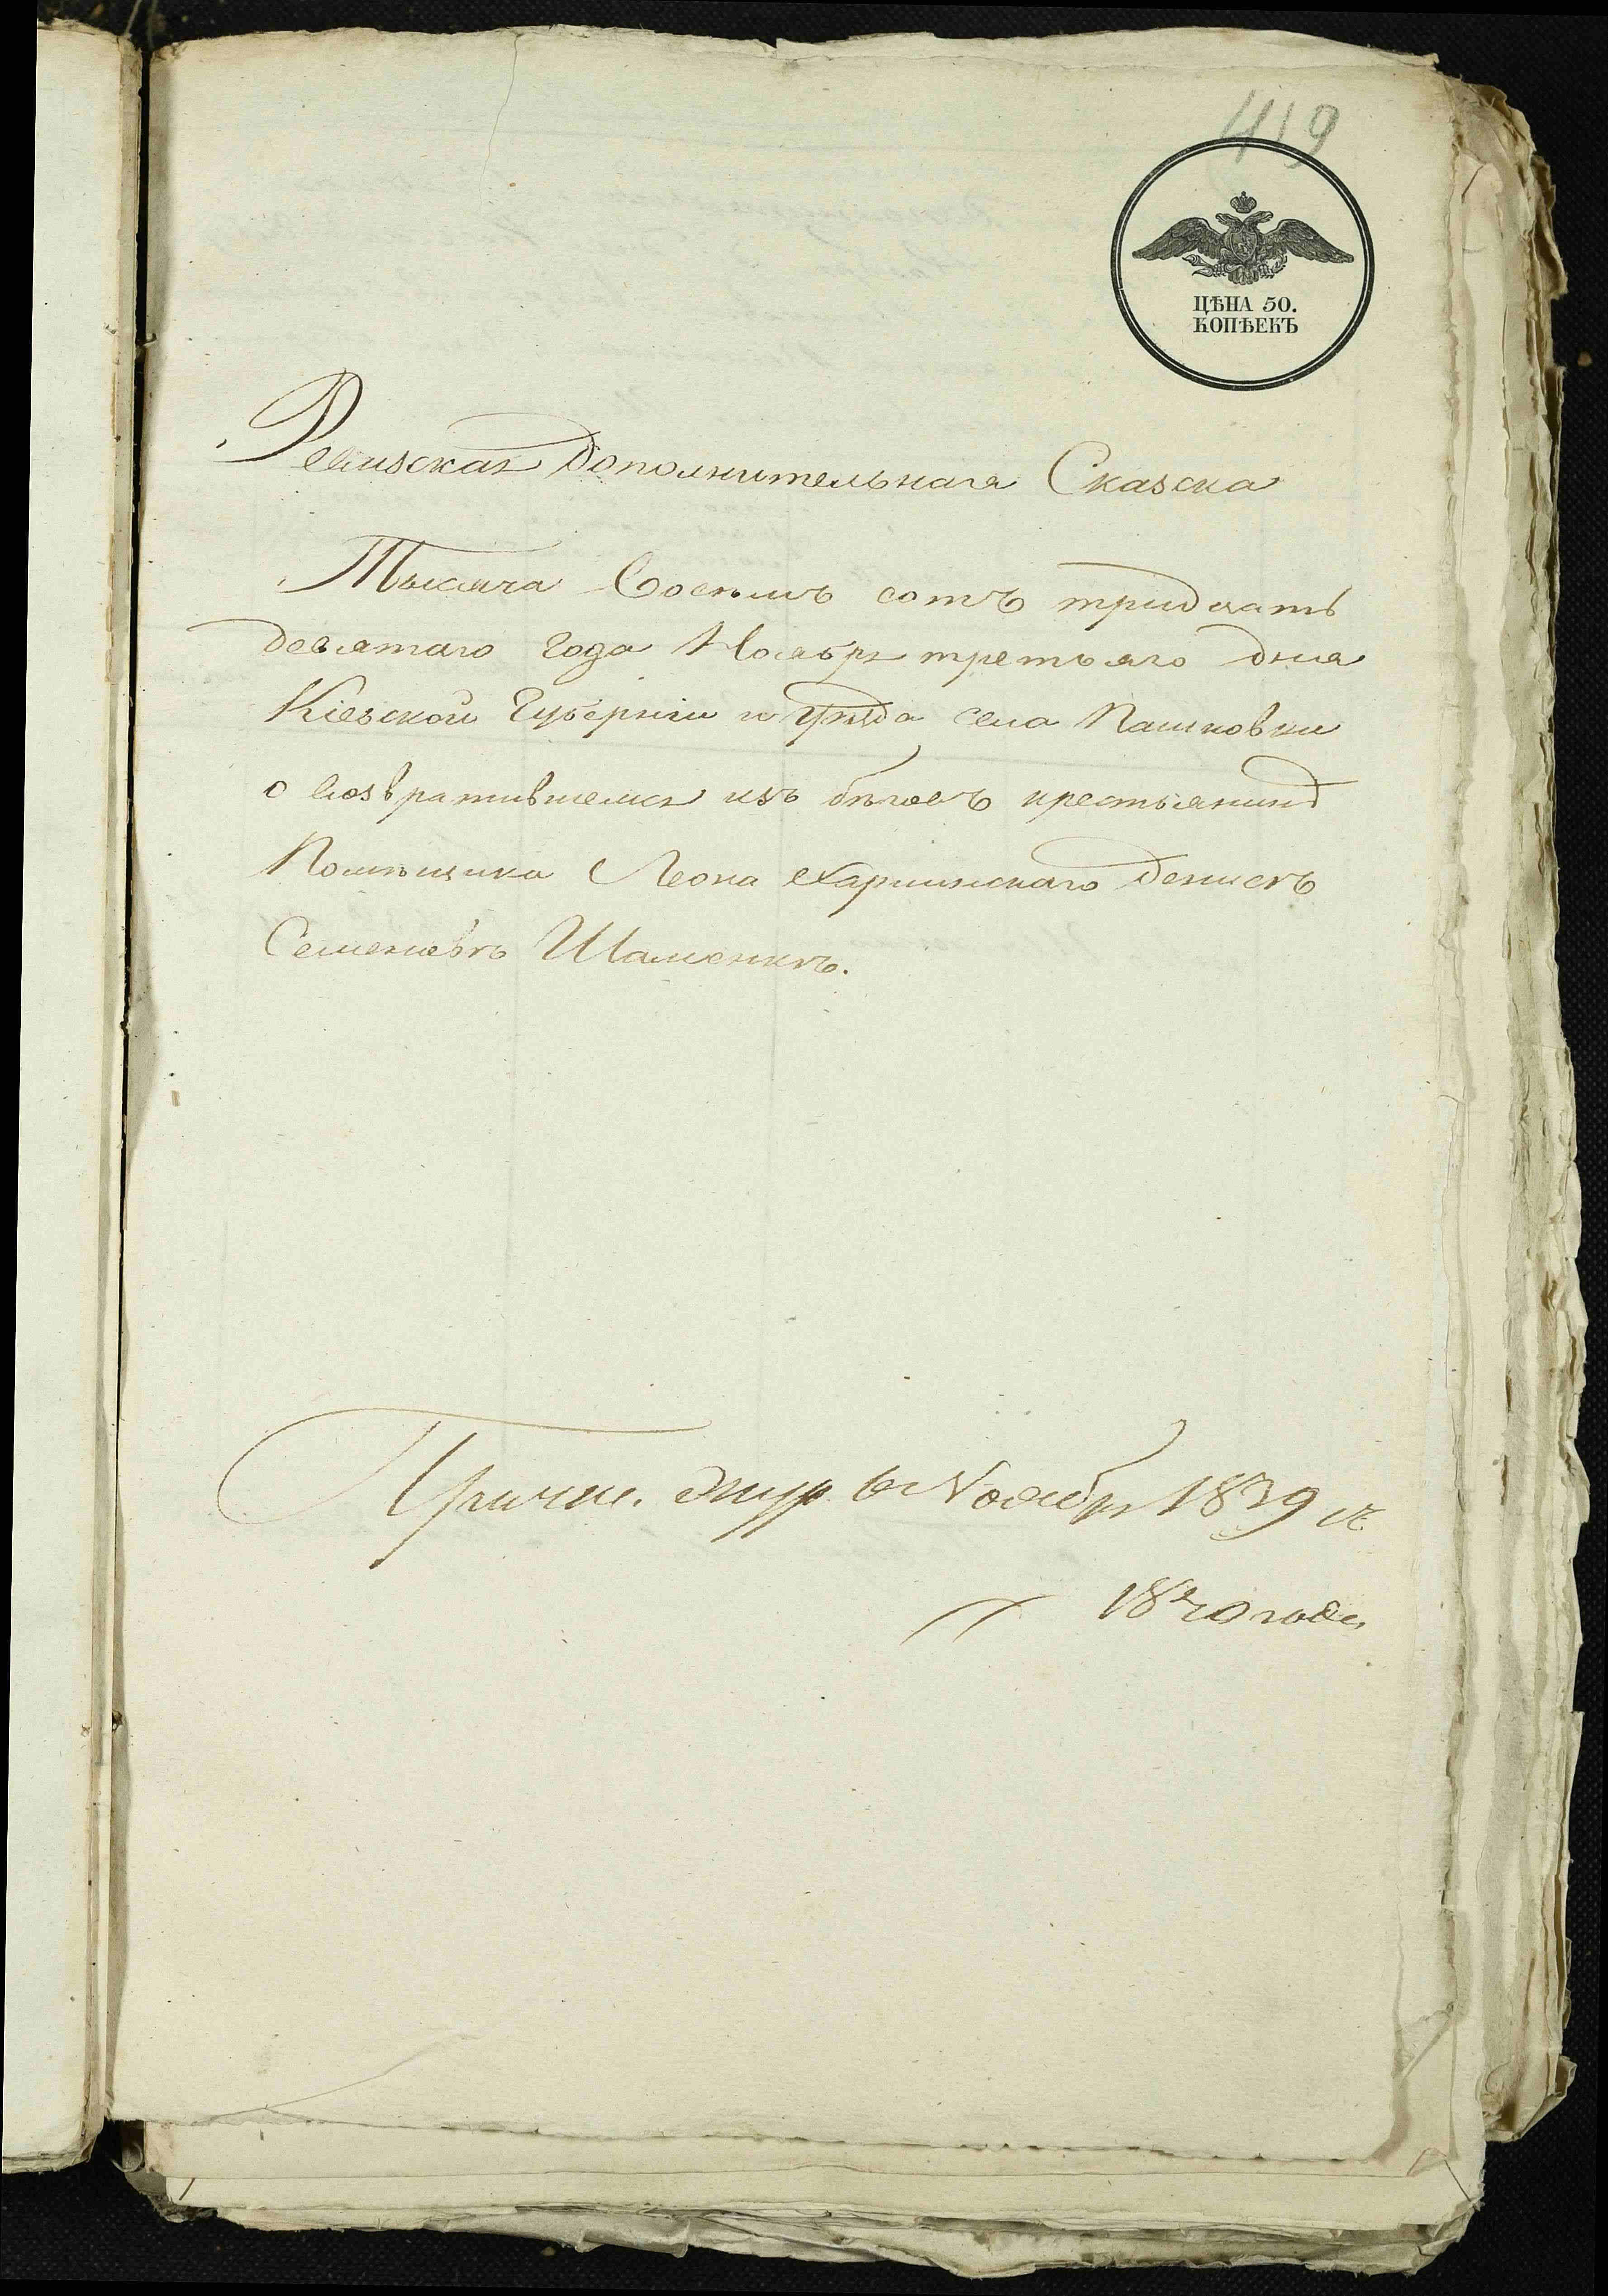 419
ЦѢНА 50.
КОПѢЕКЪ
Ревизская дополнительная Сказска
Тысяча Восемъ сотъ тридцать
девятаго года Ноября третьяго дня
Кіевской Губерніи и уѣзда села Пашковки
о возвратившемся изъ бѣговъ крестьянинѣ
Помѣщика Леона Харлинскаго Денисѣ
Семеновѣ Шаменкѣ.
Ноября 1839 и
1840 года